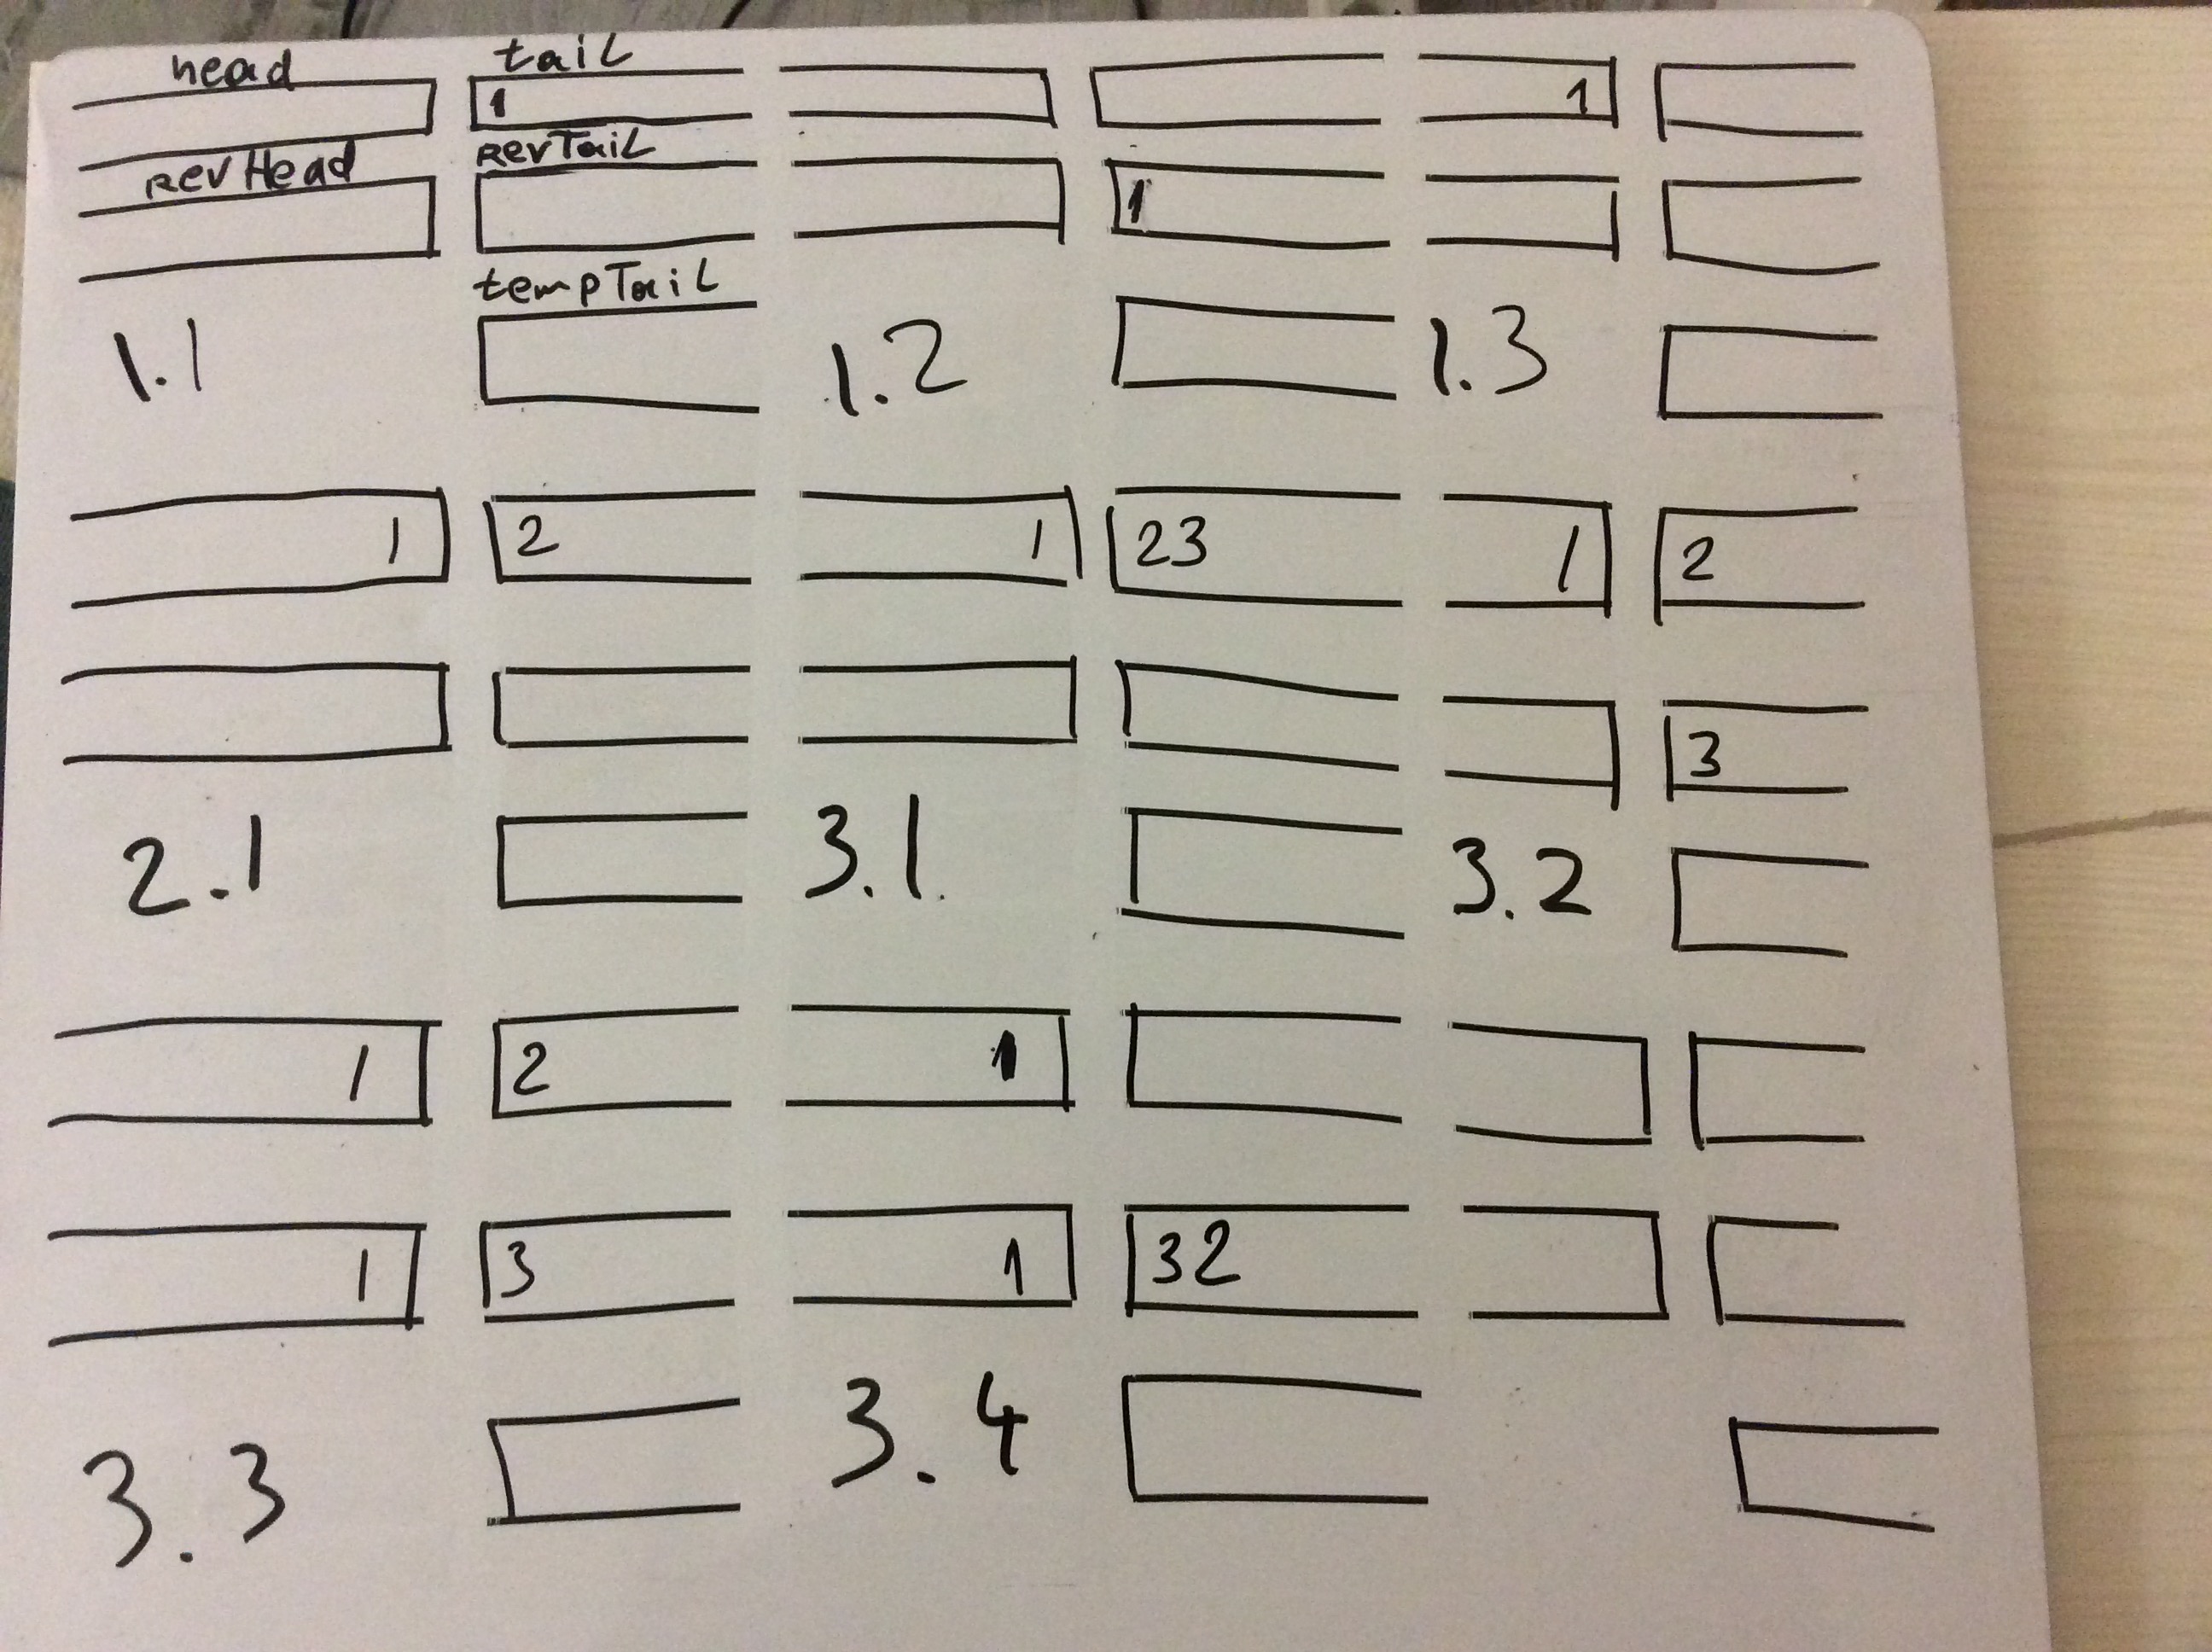 head tail
1 1
revHead revTail
1
tempTail
1.1 1.2 1.3
1 2 1 23 1 2
3
2.1 3.1 3.2
1 2 1
1 3 1 32
3.3 3.4